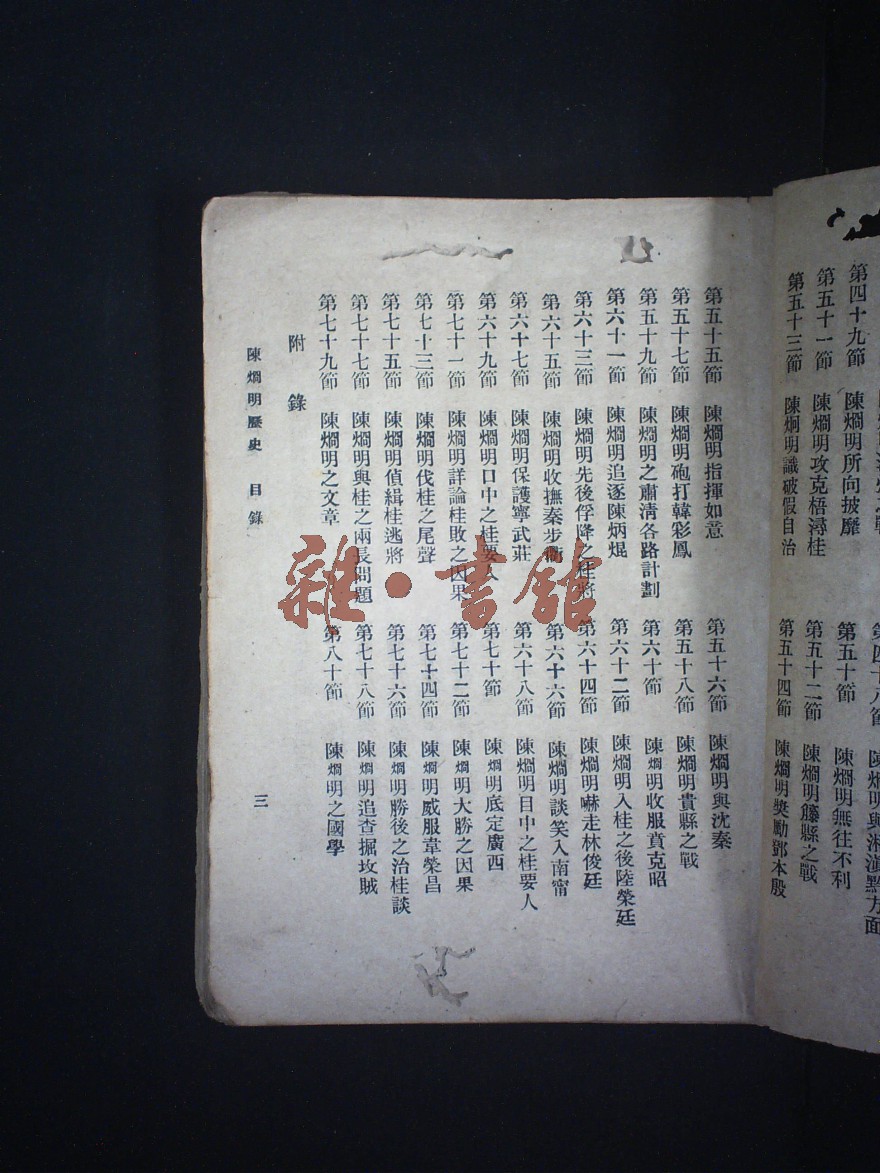 之戰 第四十八節 陳烱明與湘滇黔方面
第四十九節 陳烱明所向披靡 第五十節 陳烱明無往不利
第五十一節 陳烱明攻克梧潯桂 第五十二節 陳烱明籐縣之戰
第五十三節 陳炯明識破假自治 第五十四節 陳烱明獎勵鄧本殷
第五十五節 陳烱明指揮如意 第五十六節 陳烱明與沈秦
第五十七節 陳烱明砲打韓彩鳳 第五十八節 陳烱明貴縣之戰
第五十九節 陳烱明之肅清各路計劃 第六十節 陳烱明收服賁克昭
第六十一節 陳烱明追逐陳炳焜 第六十二節 陳烱明入桂之後陸榮廷
第六十三節 陳烱明先後俘降之桂將 第六十四節 陳烱明嚇走林俊廷
第六十五節 陳烱明收撫秦步衢 第六十六節 陳烱明談笑入南甯
第六十七節 陳烱明保護寧武莊 第六十八節 陳烱明目中之桂要人
第六十九節 陳烱明口中之桂要人 第七十節 陳烱明底定廣西
第七十一節 陳烱明詳論桂敗之因果 第七十二節 陳烱明大勝之因果
第七十三節 陳烱明伐桂之尾聲 第七十四節 陳烱明威服韋榮昌
第七十五節 陳烱明偵緝桂逃將 第七十六節 陳烱明勝後之治桂談
第七十七節 陳烱明與桂之兩長問題 第七十八節 陳烱明追查掘坟賊
第七十九節 陳烱明之文章 第八十節 陳烱明之國學
附錄
陳烱明歷史 目錄 三
雜·書館